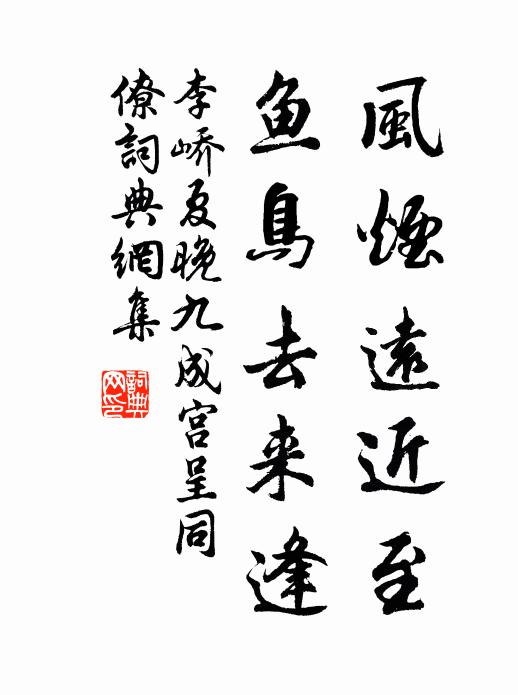 風煙遠近至
鱼鳥去来逢
李嶠夏晚九成宫呈同
僚詞典網集
詞典网印